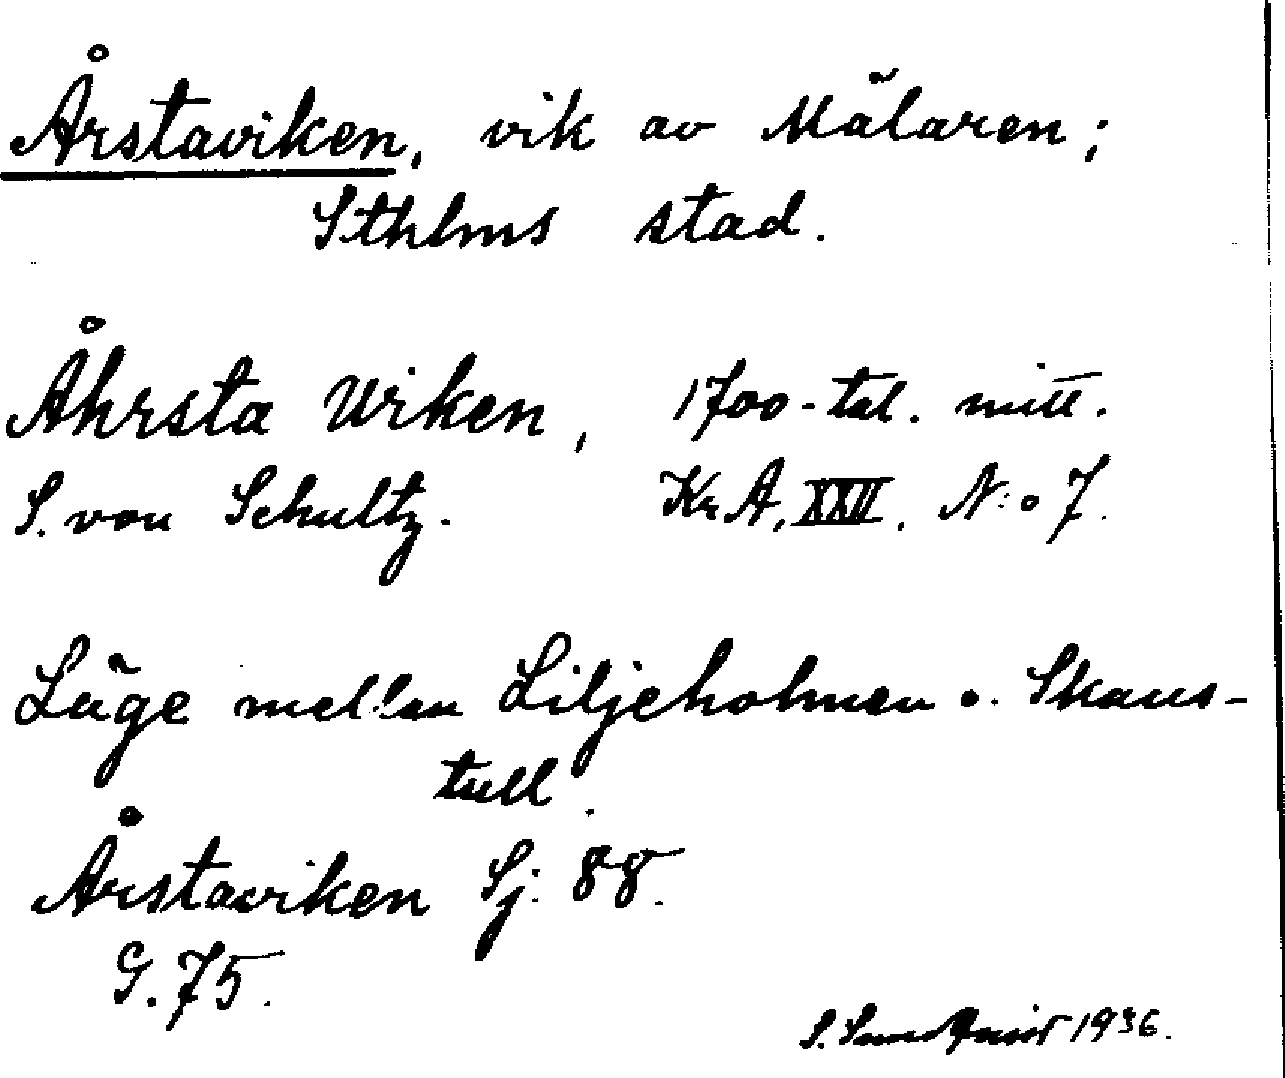 Årstaviken, vik av Mälaren;
Sthlms stad.
Åhrsta Wiken, 1700-tal. mitt.
S. von Schultz. Kr A, XXII. N:o 7.
Läge mellan Liljeholmen o. Skans-
tull.
Årstaviken Sj: 88.
G. 75.
S. 1936.